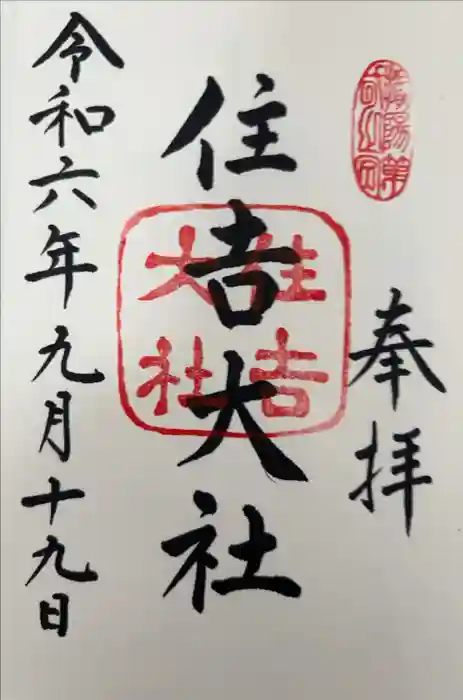 奉拝
住吉大社
住吉
大社
令和六年九月十九日